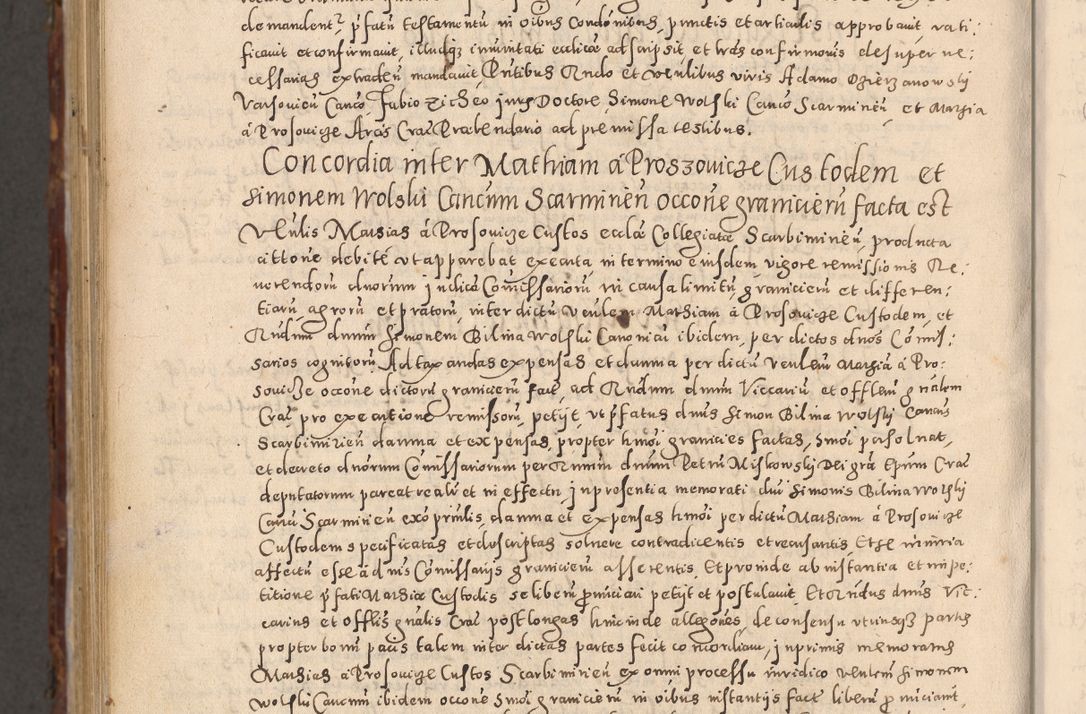 demandent p̃fatũ testamentũ in oibus Condõnibus, punctis et articulis approbavit rati
ficavit et confirmavit, illudqz imunitati eccliae adscripsit et lras confirmõnis desuper ne:
cessarias extradeñ mandavit Pñtibus Rndo et Veñlibus viris Adamo Dzierzanowsky
Varsovieñ Canco Fabio Zicheo juris Doctore, Simone Wolski Canco Scarmineñ et Mathia
à Prosovicze Arcis Crac̃ Praebendario ad premissa testibus.
Concordia inter Mathiam à Proszovicze Custodem et
Simonem Wolski Cancum Scarmineñ occõne granicierũ facta est
Veñlis Mathias à Prosovicze Custos ecclae Collegiatae Scarbimineñ, producta
cittõne debitè ut apparebat executa in termino eiusdem, vigore remissionis Re:
verendorũ dnorum judicũ Comissariorũ in causa limitũ granicierũ et differen:
tiarũ agrorũ et pratorũ, inter dictũ Veñlem Mathiam à Prosovicze Custodem, et
Rndum dnum Simonem Bilina Wolski Canonicũ ibidem, per dictos dnos Comis:
sarios cognitorũ. Ad taxandas expensas et damna per dictũ Venlem Mathiã à Pro:
sovicze occõne dictorũ granicierũ fact, ad Rndum dnum Vicariũ et Offlem gñalem
Crac̃ pro executione remissorũ, petijt, ut p̃fatus dnus Simon Bilina Wolsky Cancus
Scarbimirieñ damna et expensas, propter hmõi granicies factas, hmõi persolvat,
et decreto dnorum Comissariorum per Rnmum dnum Petrũ Miskowsky Dei grã Epum Crac̃
deputatorum pareat realr et in effectu, in presentia memorati dni Simonis Bilina Wolsky
Canci Scarmirieñ ex opprmilis, damna et expensas hmõi per dictũ Mathiam à Prosovicze
Custodem specificatas et descriptas solvere contradicentis et recusantis, Et se in iniuria
affectũ esse à dnis Comissarijs granicierũ asserentis. Et proinde ab instantia et impe:
titione p̃fati Mathiae Custodis se liberũ p̃nunciari petijt et postulavit. Et Rndus dnus Vic:
carius et Offlis gñalis Crac̃ post longas hincinde allegões, de consensu utriusqz partis
propter bonũ pacis talem inter dictas partes fecit concordiam, inprimis memoratus
Mathias à Prosovicze Custos Scarbimirieñ ex omni processu iuridico Veñlem Simonem
Wolski Cancum ibidem occõne hmõi granicierũ in oibus instantijs fact liberũ p̃nunciavit,